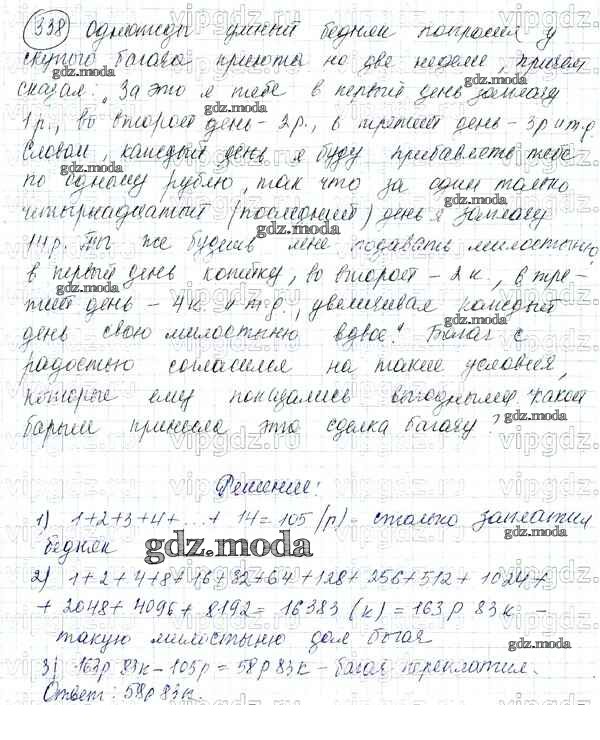 338) Однажды умный бедняк попросил у
скупого богача приюта на две недели, причем
сказал: "За это я тебе в первый день заплачу
1р., во второй день - 2р., в третий день - 3р и т.д
Словом, каждый день я буду прибавлять тебе
по одному рублю, так что за один только
четырнадцатый (последний) день я заплачу
14р. Ты же будешь мне подавать милостыню:
в первый день копейку, во второй - 2к., в тре-
тий день - 4к. и т.д., увеличивая каждый
день свою милостыню вдвое." Богач с
радостью согласился на такие условия,
которые ему показались выгодными. Какой
барыш принесла эта сделка богачу?
Решение:
1) 1+2+3+4+...+ 14=105 (р) - столько заплатил
бедняк
2) 1+2+4+8+16+32+64+128+256+512+1024+
+2048+4096+8192=16383 (к) = 163р 83к -
такую милостыню дал богач
3) 163р 83к - 105р = 58р 83к - богач переплатил.
Ответ: 58р 83к.
gdz.moda
vipgdz.ru